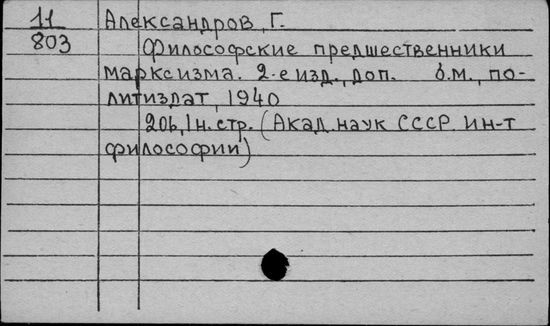 11
803
Александров, Г.
Философские предшественники
марксизма. 2-е изд., доп. б.м., по-
литиздат, 1940
206, 1н. стр. (Акад. наук СССР. ин-т
философии)